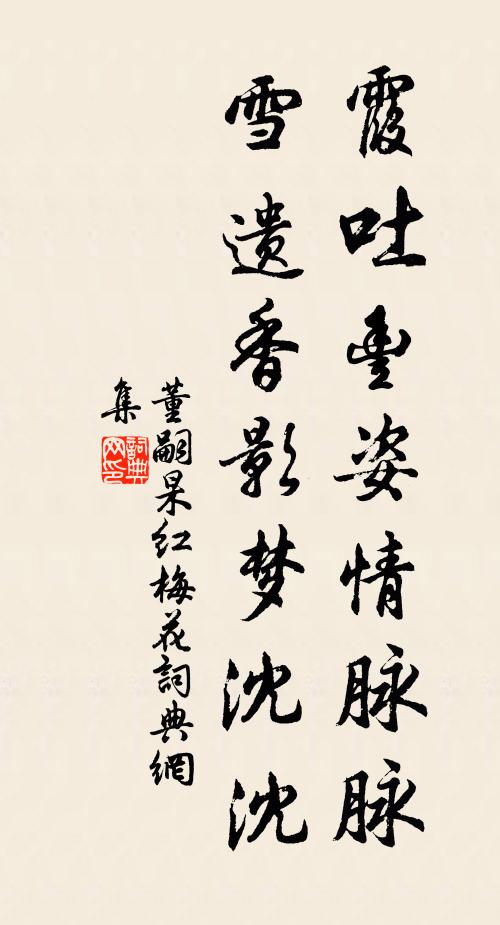 霞吐豐姿情脉脉
雪遺香影梦沈沈
董嗣杲红梅花詞典網
集
詞典網印